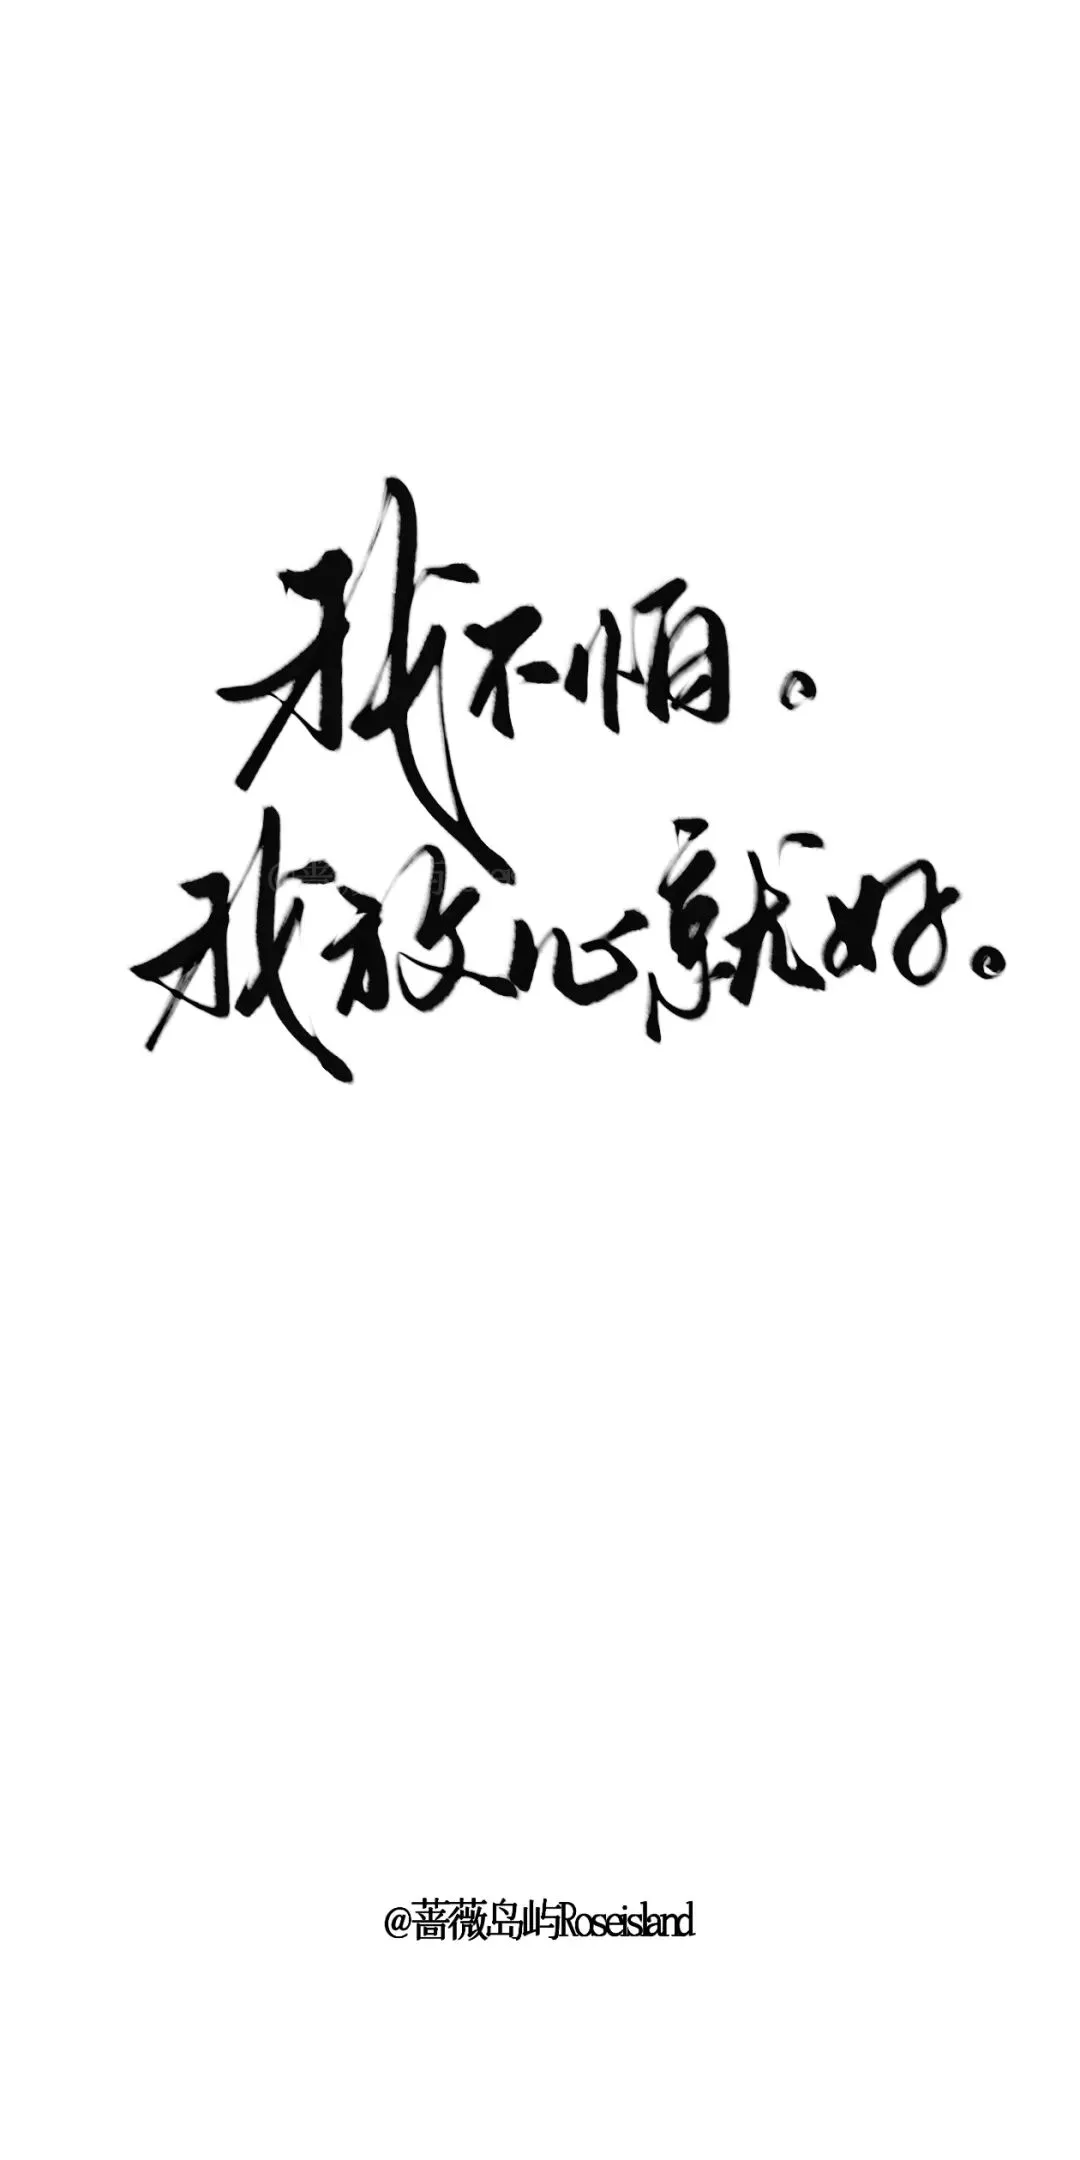 我不怕。
我放心就好。
@蔷薇岛屿Roseisland